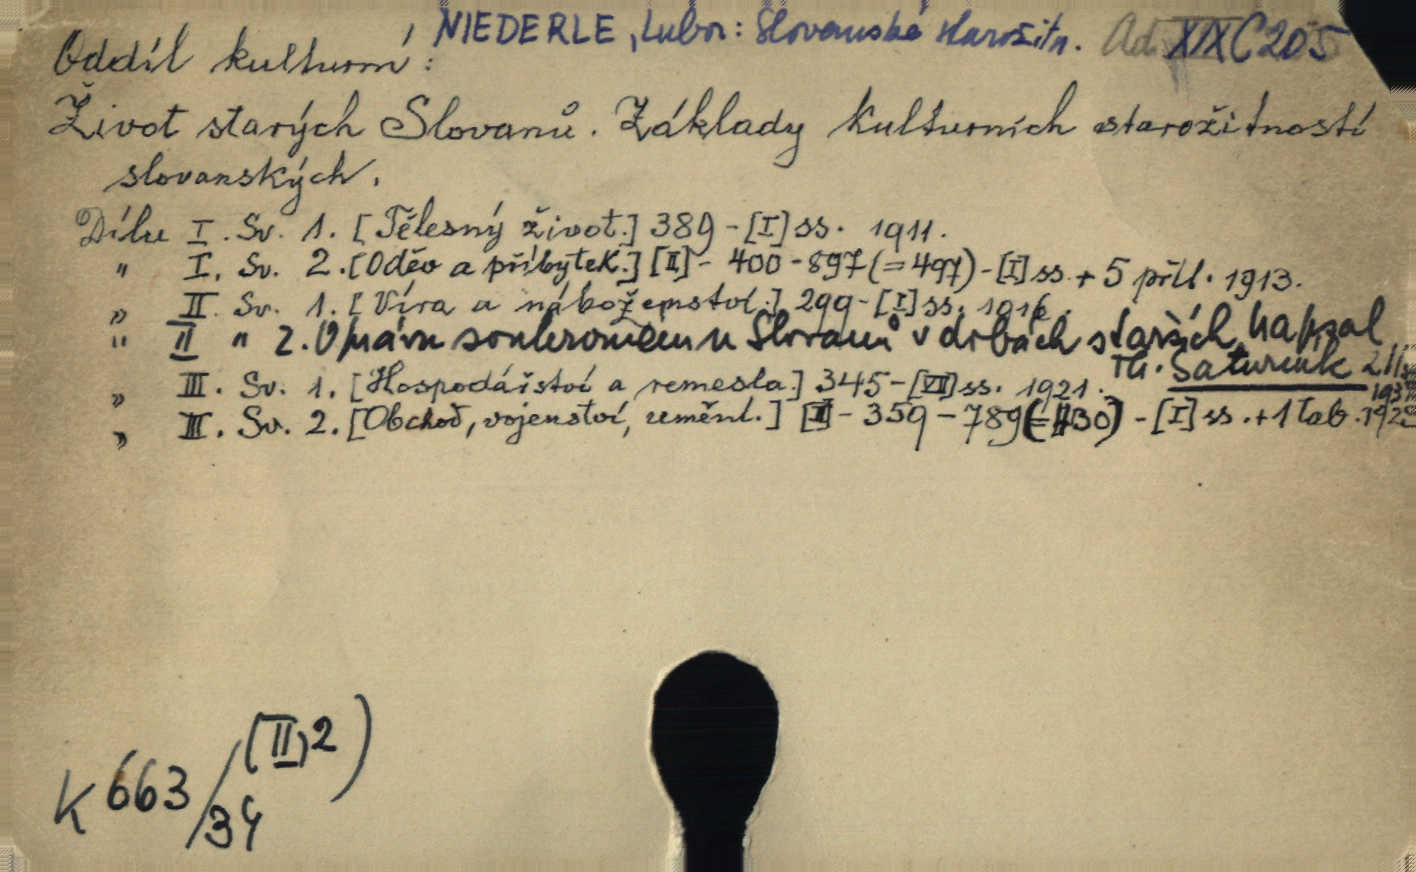 NIEDERLE, Lubor: Slovanské starožitn. Ad XIX C 205
Oddíl kulturní:
Život starých Slovanů. Základy kulturních starožitností
slovanských.
Dílu I. Sv. 1. [Tělesný život.] 389-[I] ss. 1911.
" I. Sv. 2. [Oděv a příbytek.] [II]- 400-897(=497)-[I] ss + 5 příl. 1913.
" II. Sv. 1. [Víra a náboženství.] 299-[I] ss. 1916.
" II " 2. O právu soukromém u Slovanů v dobách starších napsal
Th. Saturník
" III. Sv. 1. [Hospodářství a remesla.] 345-[VII] ss. 1921.
" III. Sv. 2. [Obchod, vojenství, umění.] [II]- 359-789(=430)-[I] ss. + 1 tab. 1925
K 663/34 (II,2)